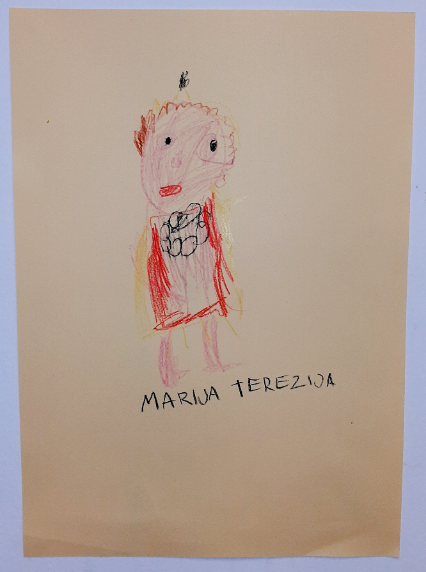 MARIJA TEREZIJA